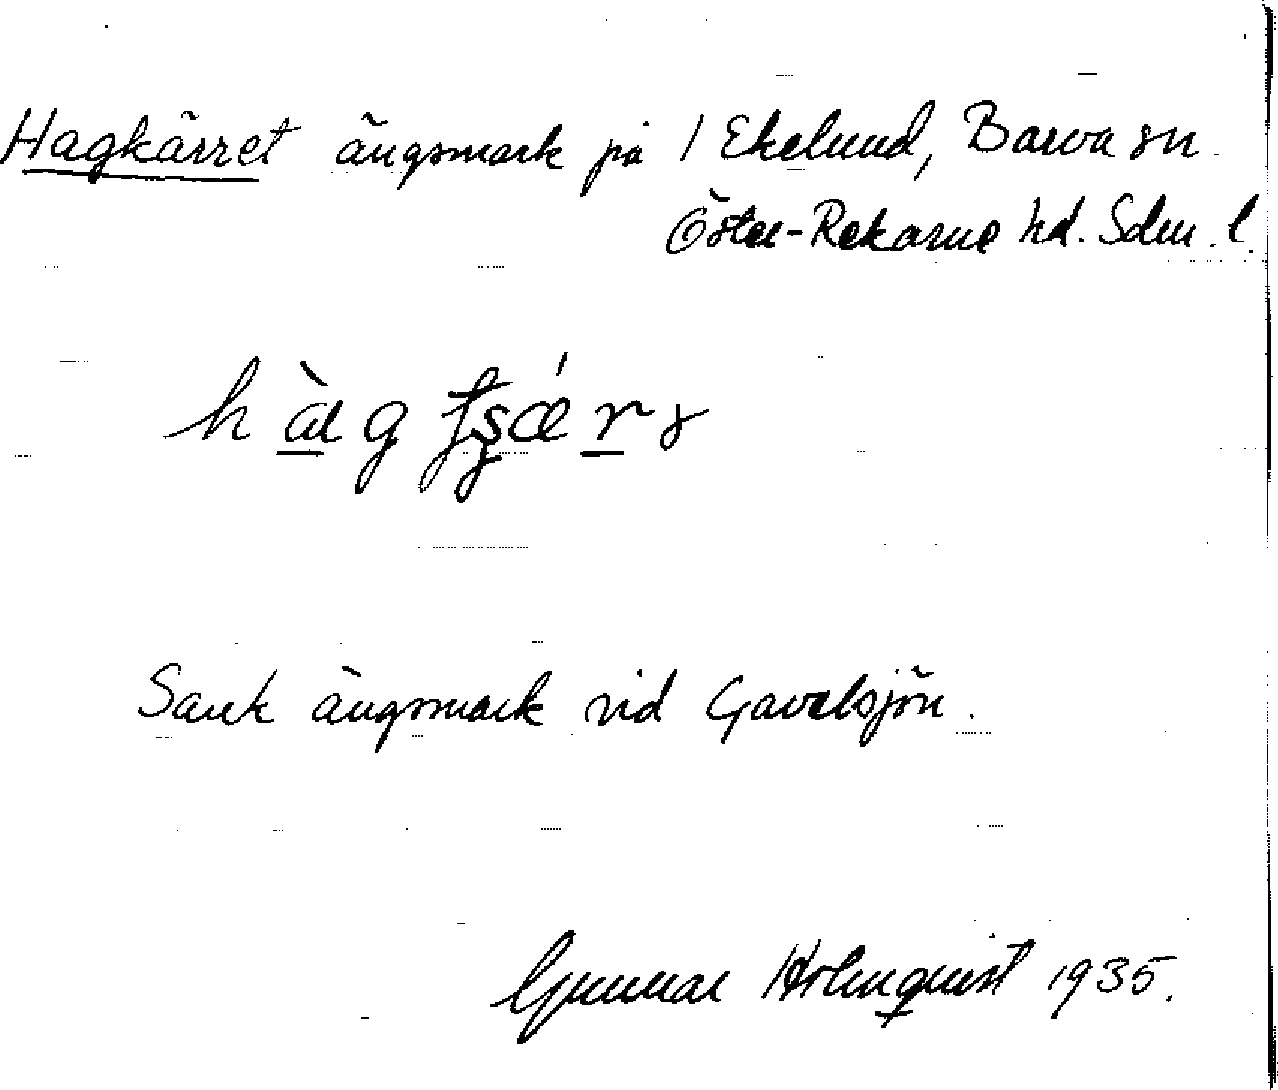 Hagkärret ängsmark på 1 Ekelund, Barva sn.
Öster-Rekarne hd. Sdm. l.
Sank ängsmark vid Gavelsjön.
Gunnar Holmquist 1935.